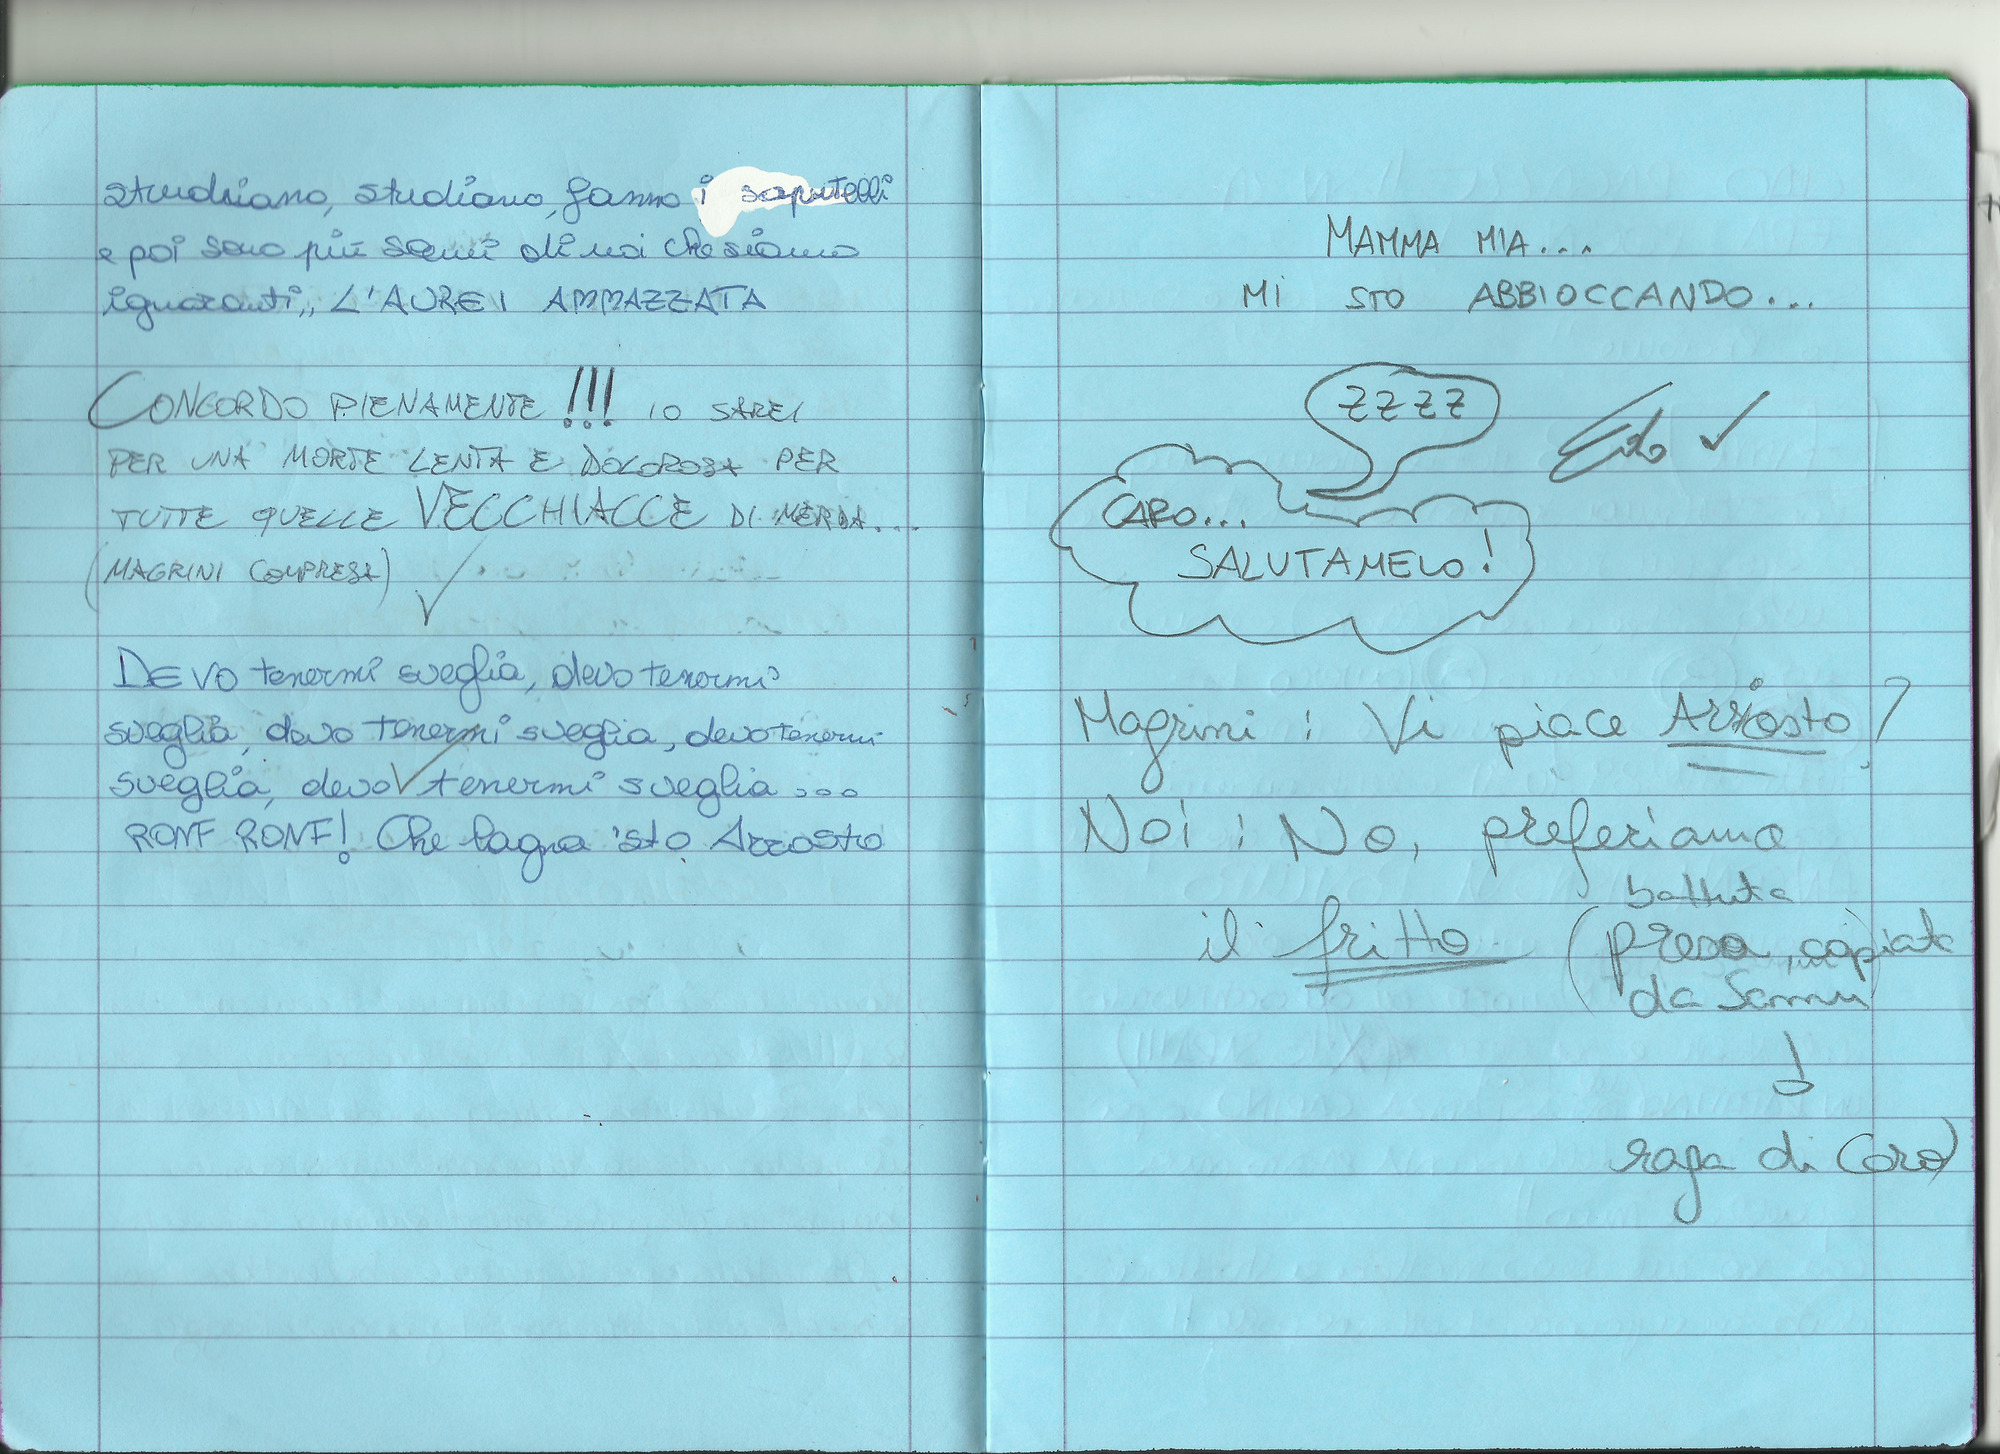 studiano, studiano, fanno i saputelli
e poi sono più scemi di noi che siamo
ignoranti,, L'AUREI AMMAZZATA
CONCORDO PIENAMENTE !!! IO SAREI
PER UNA MORTE LENTA E DOLOROSA PER
TUTTE QUELLE VECCHIACCE DI MERDA...
(MAGRINI COMPRESA)
DEVO tenermi sveglia, devo tenermi
sveglia, devo tenermi sveglia, devo tenermi
sveglia, devo tenermi sveglia ...
RONF RONF! Che lagna 'sto Arrosto
MAMMA MIA...
MI STO ABBIOCCANDO...
ZZZZ
Edo
CARO...
SALUTAMELO!
Magrini : Vi piace Arriosto?
Noi : No, preferiamo
il fritto (battuta
presa, copiata
da Sammy
raga di Coro)